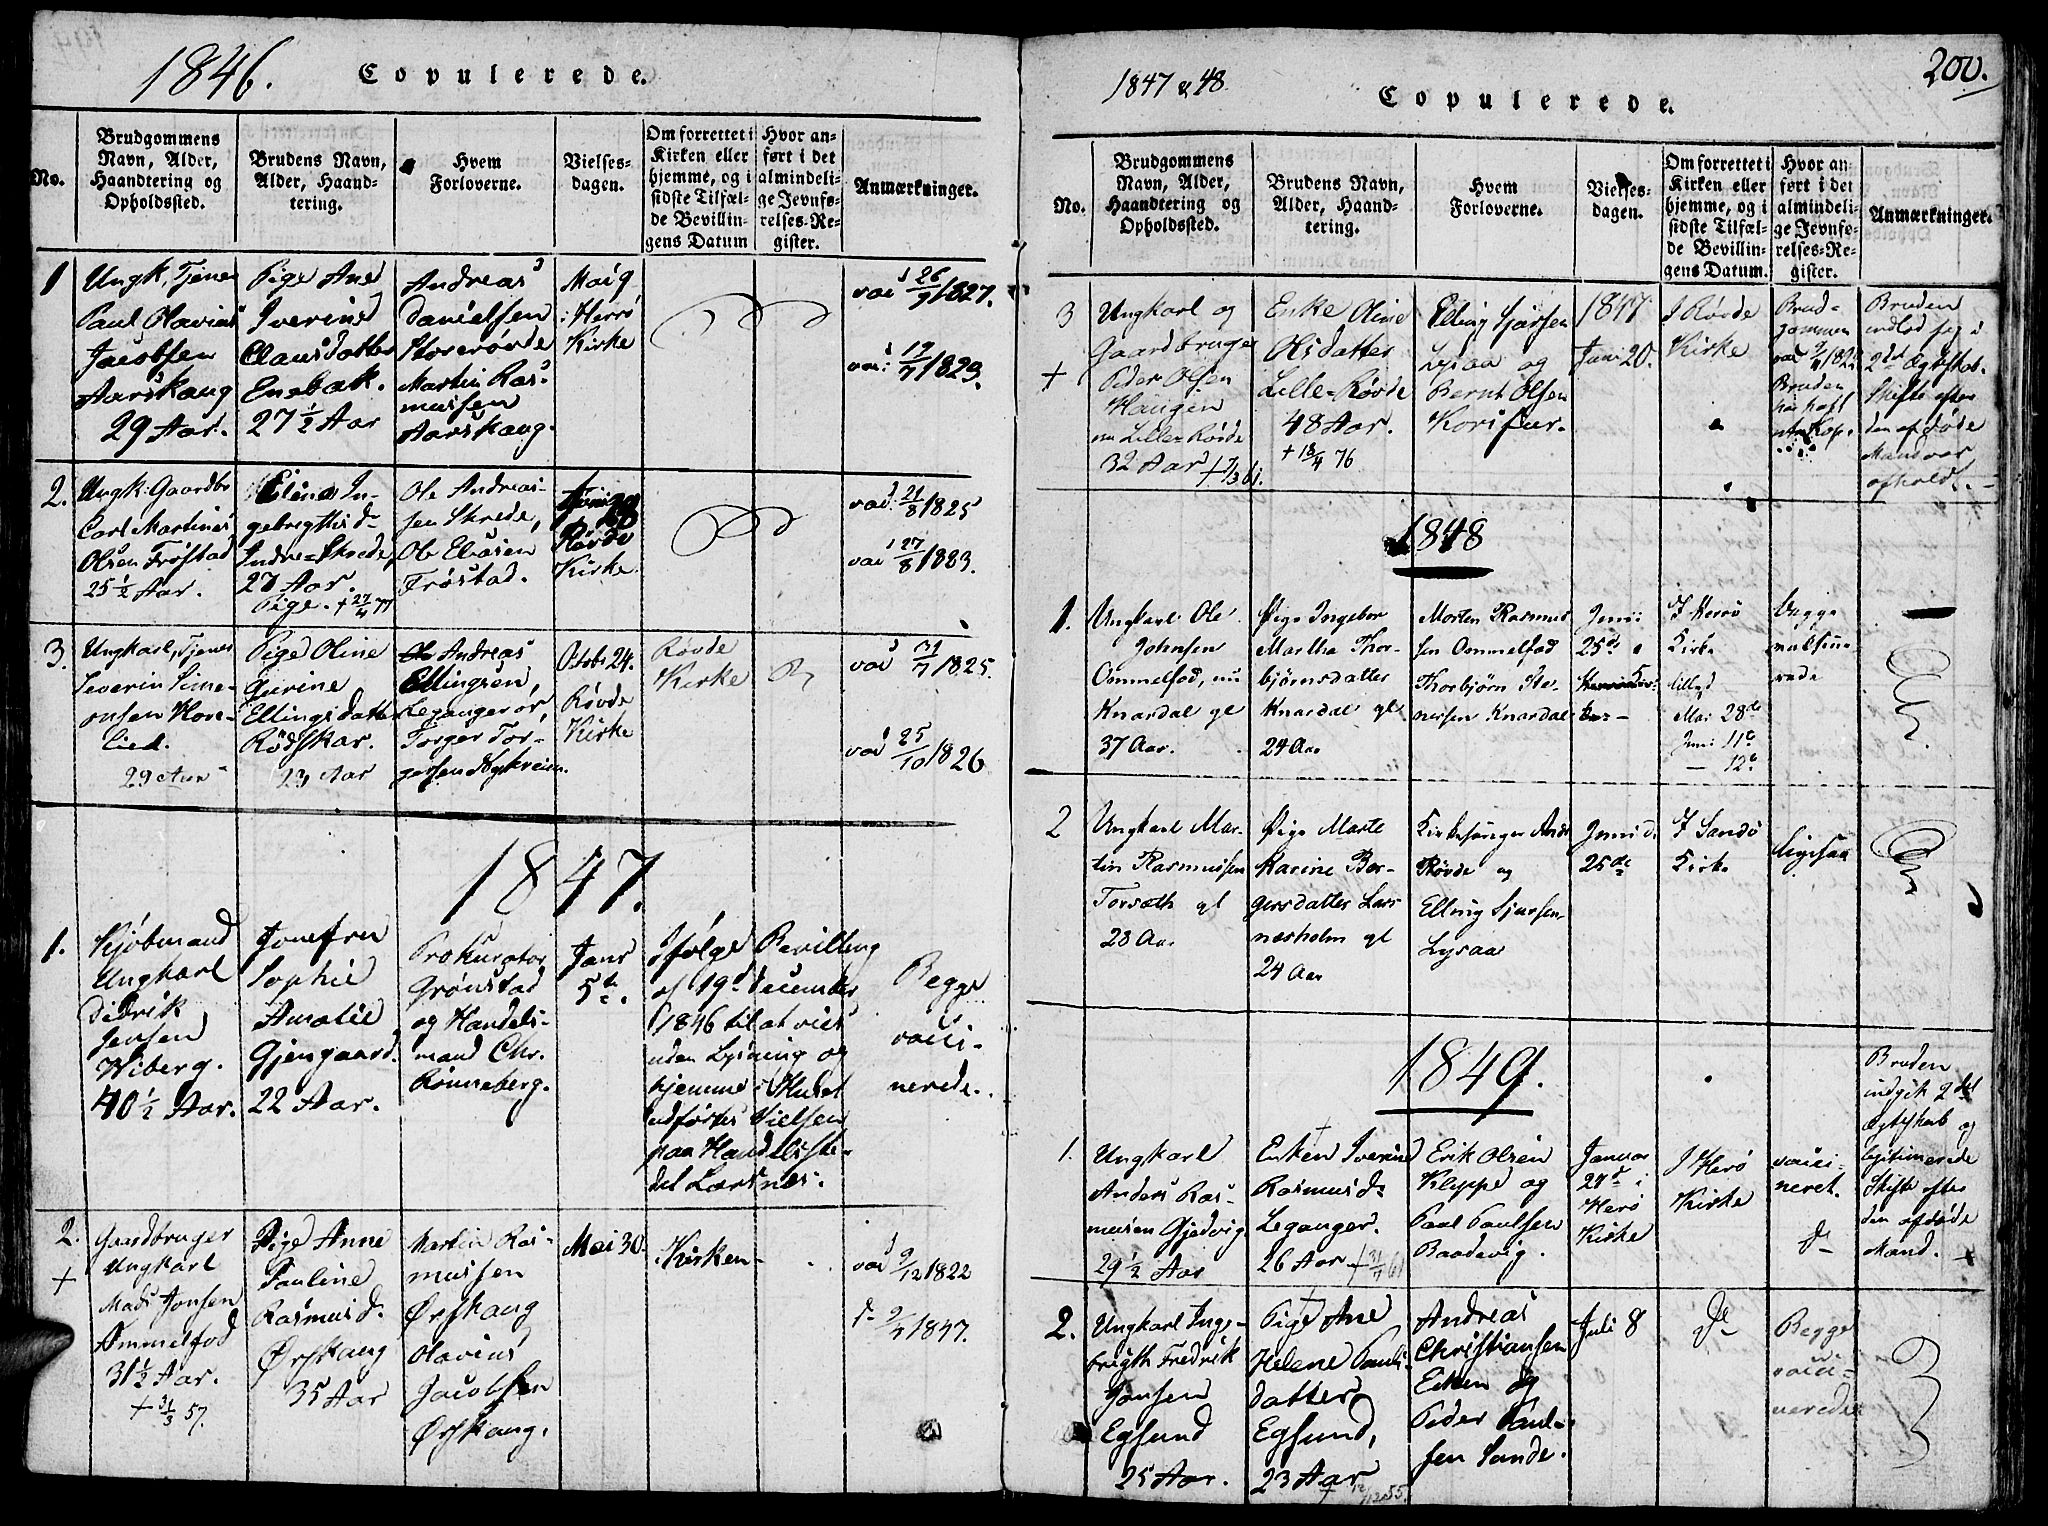 1846.
Copulerede.
No.
Brudgommens
Navn, Alder,
Haandtering og
Opholdssted.
Brudens Navn,
Alder, Haand-
tering.
Hvem
Forloverne.
Vielses-
dagen.
Om forrettet i
Kirken eller
hjemme, og i
sidste Tilfæl-
de Bevillin-
gens Datum
Hvor an-
ført i det
almindeli-
ge Jevnfø-
relses-Re-
gister.
Anmærkninger.
1
Ungk. Tjener
Paul Olavius
Jacobsen
Aarskaug
29 Aar.
Pige Ane
Iverine
Clausdatter
Enebak.
27 1/2 Aar
Andreas
Danielsen
Storerövde
Martin Ras-
mussen
Aarskaug.
Mai 9
i Herö
Kirke
vac 26/9 1827.
vac. 19/7 1829.
2.
Ungk. Gaardbr
Carl Martinus
Olsen Fröstad
25 1/2 Aar.
Elina In-
gebrigtsd.
Indre-Skrede
27 Aar.
Pige. + 27/4 77
Ole Andreas-
sen Skrede,
Ole Eliasen
Fröstad.
Rövde
Kirke
vac. 21/8 1825
vac 27/8 1823.
3.
Ungkarl, Tjener
Severin Sime-
onsen Hove-
lied.
29 Aar
Pige Oline
Gurine
Ellingsdatter
Rödskar.
23 Aar
Andreas
Ellingsen,
Leganger ör,
Torger Tor-
gersen Nykreim.
Octobr 24.
Rövde
Kirke
Rövde
Kirke
vac 31/7 1825.
vac 25/10 1826
1847.
1.
Kjöbmand
Ungkarl
Didrik
Jensen
Wiberg.
40 1/2 Aar.
Jomfru
Sophie
Amalie
Gjengaard.
22 Aar.
Prokurator
Grönstad
og Handels-
mand Chr.
Rönneberg.
Janr
5te.
Ifölge Bevilling
af 19d December
1846 til at vies
uden Lysning og
hjemme i Huset
udförtes Vielsen
paa Handelsste-
det Larsnes.
Begge
vacci-
nerede.
2.
+
Gaardbruger
Ungkarl
Mads Jonsen
Ammelfod
31 1/2 Aar.
+ 31/3 57.
Pige Anne
Pauline
Rasmusd.
Ørskaug
35 Aar
Martin Ras-
mussen
Ørskaug
Olavius
Jacobsen
Ørskaug.
Mai 30.
Kirken
vac 9/12 1822
d- 9/7 1847.
1847 & 48.
Copulerede.
200.
No.
Brudgommens
Navn, Alder,
Haandtering og
Opholdssted.
Brudens Navn,
Alder, Haand-
tering.
Hvem
Forloverne.
Vielses-
dagen.
Om forrettet i
Kirken eller
hjemme, og i
sidste Tilfæl-
de Bevillin-
gens Datum.
Hvor an-
ført i det
almindeli-
ge Jevnfø-
relses-Re-
gister.
Anmærkninger.
3
+
Ungkarl og
Gaardbruger
Peder Olsen
Haugen
nu Lille-Rövde
32 Aar
Enke Oline
Olsdatter
Lille-Rövde
48 Aar.
+ 18/4 76
Elling Sjursen
Lysaa og
Bernt Olsen
Korsfur.
1847.
Juni 20.
I Rövde
Kirke
Brud-
gommen
Bruden
har haft
Bruden
indlod sig i
2d Ægteskab.
Skifte efter
den afdöde
Mand var
afholdt.
1848
1.
Ungkarl Ole
Johnsen
Ommelfod, nu
Knardal gl
37 Aar.
Pige Ingebor
Martha Thor-
björnsdatter
Knardal gl
24 Aar
Morten Rasmus
sen Ommelfod
Thorbjörn Ste-
nersen Knardal
Juni
25de
I Herö
Kirke
tillyst
Mai 28de
Juni 11te
— 12te
Begge
vaksine-
rede
2
Ungkarl Mar-
tin Rasmussen
Torvæth gl
28 Aar
Pige Marte
Karine Bør-
gersdatter Lars-
nesholm gl
24 Aar
Kirkesanger Andr
Rövde og
Elling Sjursen
Lysaa
Juni d.
25de
I Sandö
Kirke
ligesaa
1849.
1.
Ungkarl
Anders Ras-
musen Gjedvig
29 1/2 Aar
+
Enken Iverine
Rasmusd.
Leganger.
26 Aar
Erik Olsen
Kleppe og
Paul Paulsen
Baadsvig.
Januar
24d i
Herö
Kirke
I Herö
Kirke
vacci-
neret.
d-
Bruden
indgik 2det
Ægteskab og
legitimerede
Skifte efter
den afdöde
Mand.
2.
Ungkarl Inge-
brigth Fredrik
Jonsen
Egsund
25 Aar.
+
Pige Ane
Helene Pauls-
datter
Egsund,
23 Aar
+ 12/12 55.
Andreas
Christiansen
Eiken og
Peder Paul-
sen Sande.
Juli 8
d-
Begge
vacci-
nerede